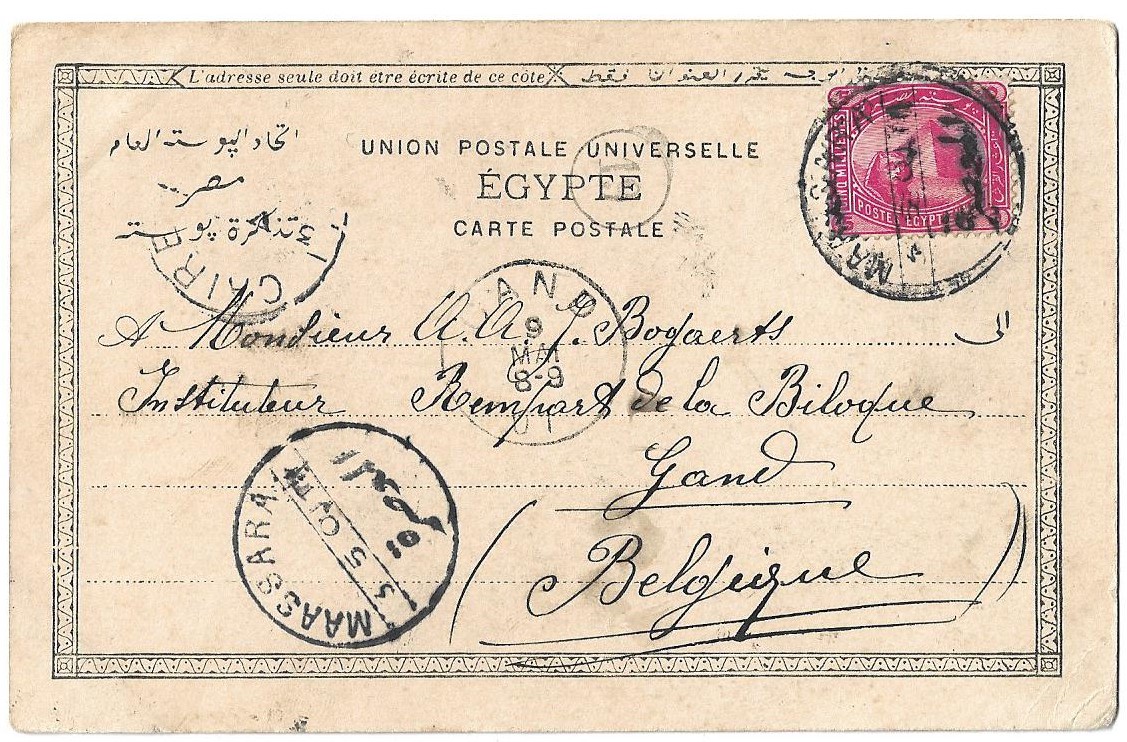 L'adresse seule doit être écrite de ce côté
فقط
اتحاد البوسته العام
مصر
تذكرة بوسته
UNION POSTALE UNIVERSELLE
ÉGYPTE
CARTE POSTALE
CINQ MILLIEMES
POSTES EGYPTIENNES
CAIRE
GAND
9
MAI
8-9
01
A Monsieur A. A. J. Bogaerts
الى
Instituteur Rempart de la Biloque
Gand
(Belgique)
MAASSARA
3 5 01
المعصرة